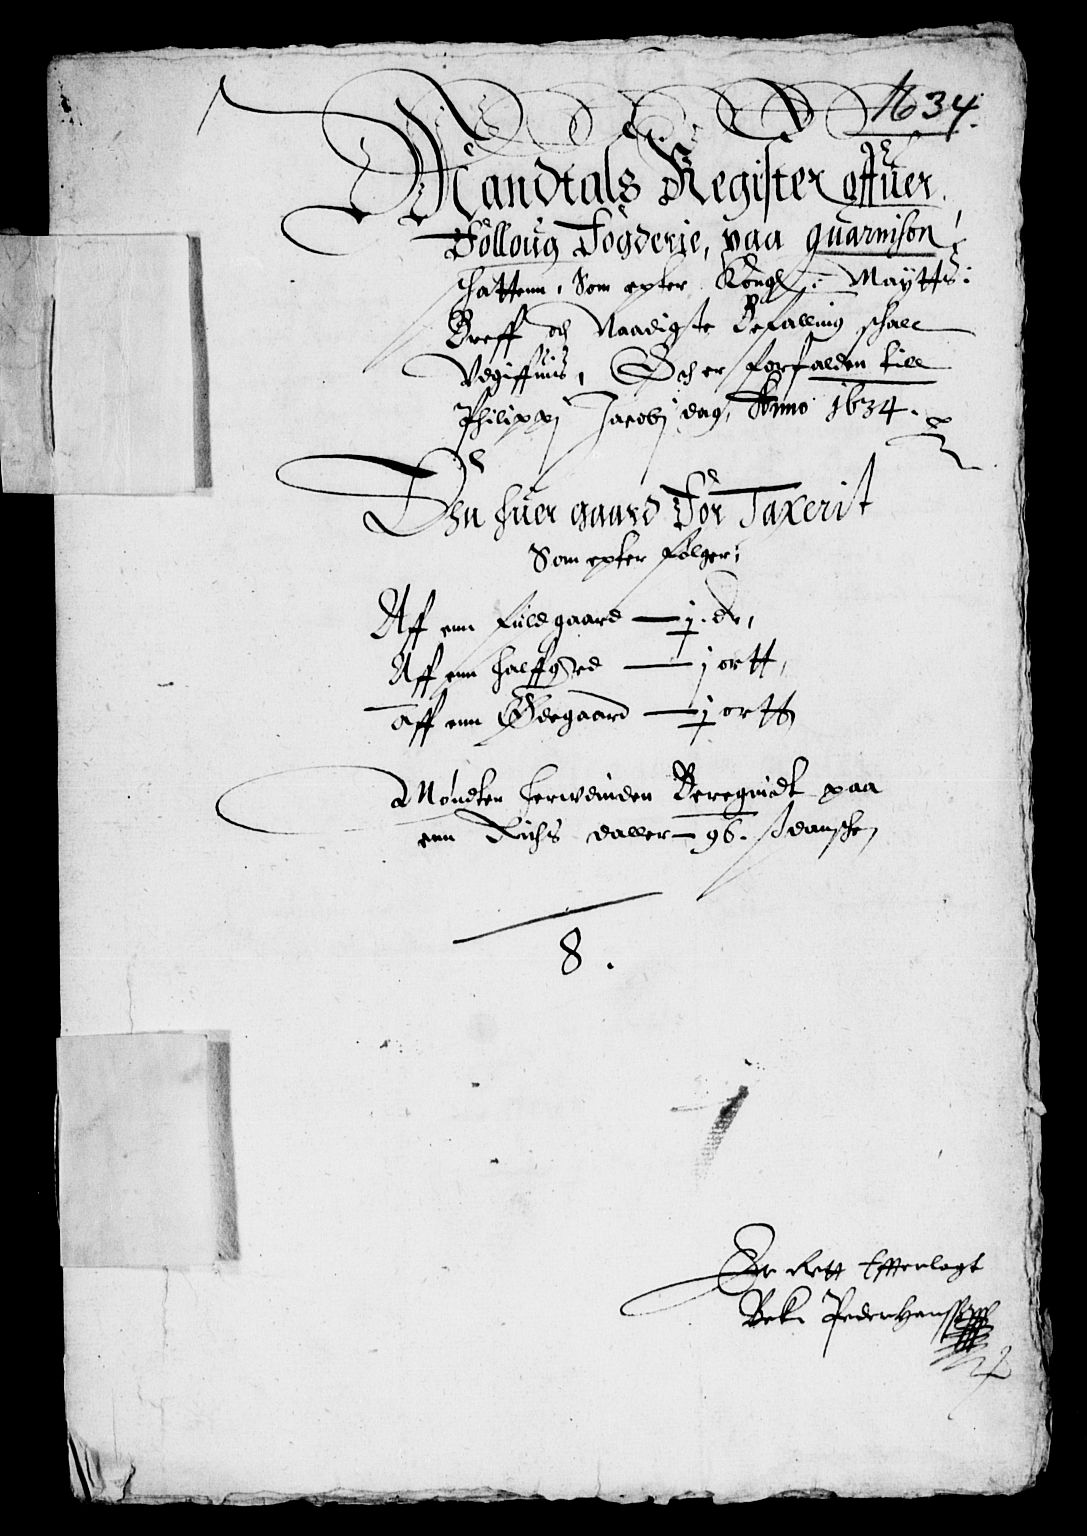 1634.
Mandtals Register offuer
Folloug Fogderje, paa guarnison
schattenn, Som epter Kongl: Maytts:
Breff och Naadigste Befalling schall
Vdgiffuis, Och er forfalden till
Philippj Jacobj dag, Anno 1634.
Den huer gaard For Taxerit
Som epter følger:
Aff enn fuldgaard — j. dr,
Aff enn halffgrd — j ortt,
Aff enn Ødegaard — j ortt,
Møndten herwdinden Beregnidt paa
enn Richs daller — 96. ß danske,
8.
Er Rett Efterlagt
Bek. Peder Hanssen